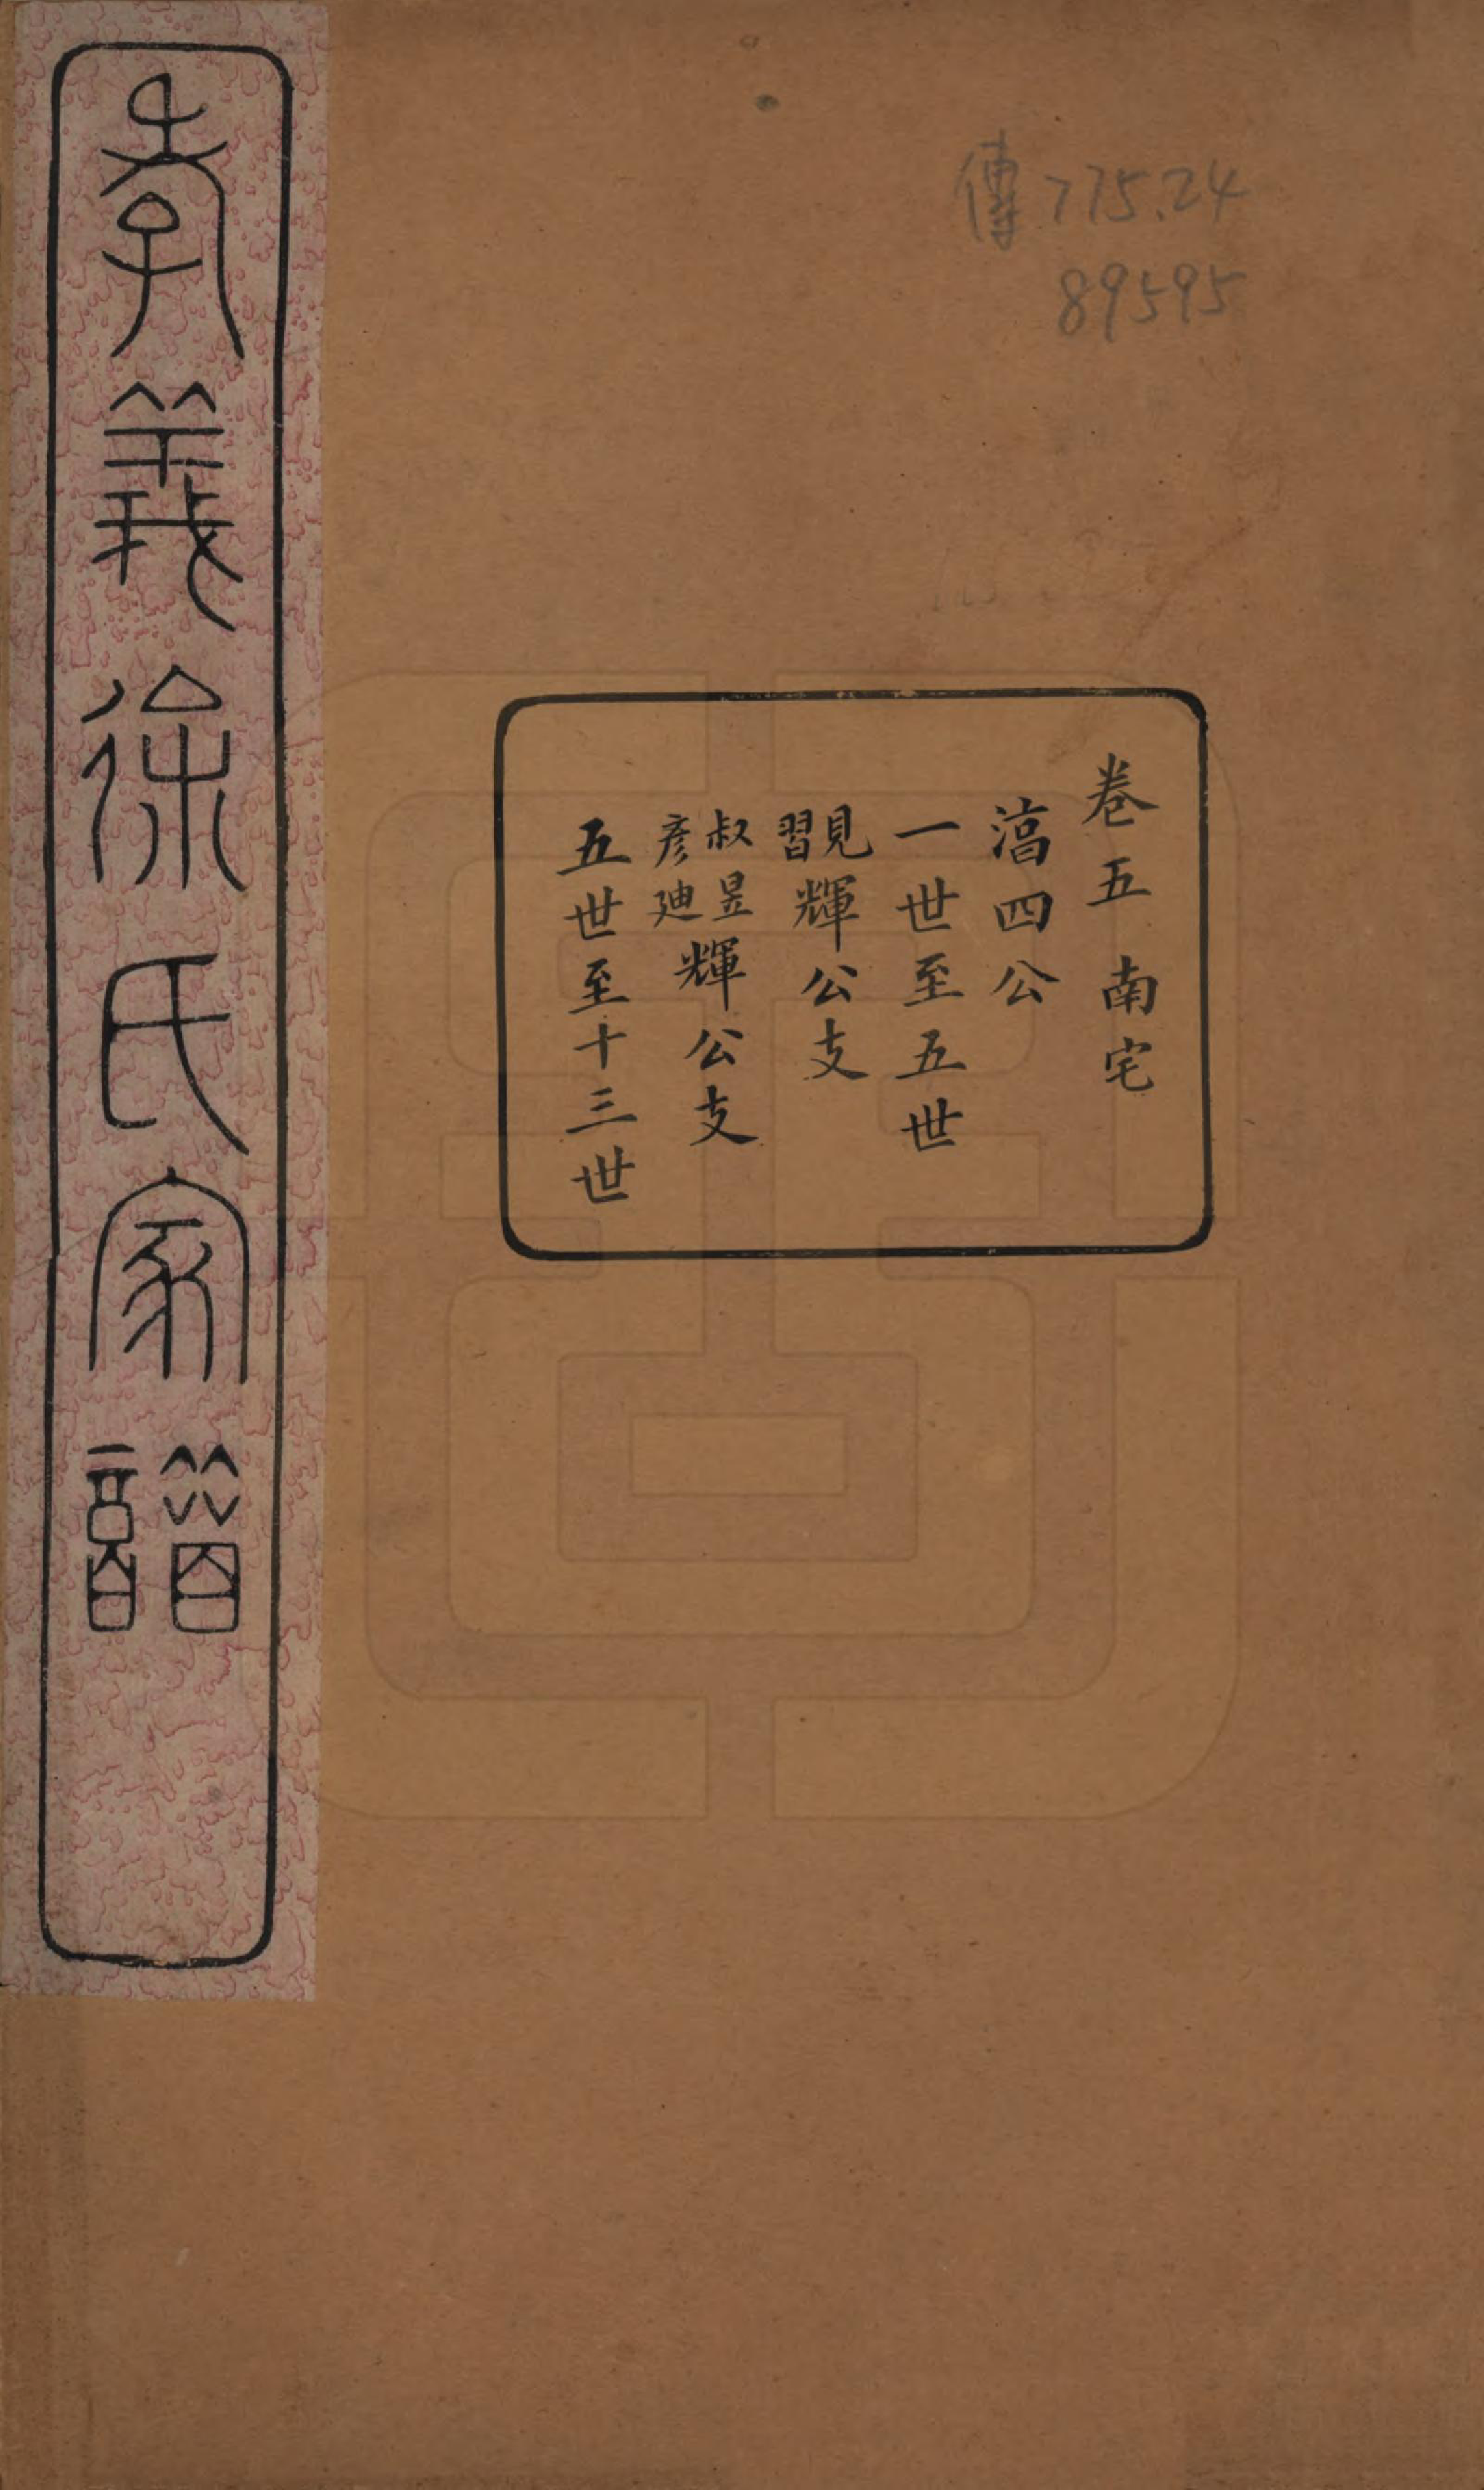 傳 775.24
89595
卷五 南宅
湻四公
一世至五世
見習輝公支
叔昱彥廸輝公支
五世至十三世
孝義徐氏家譜